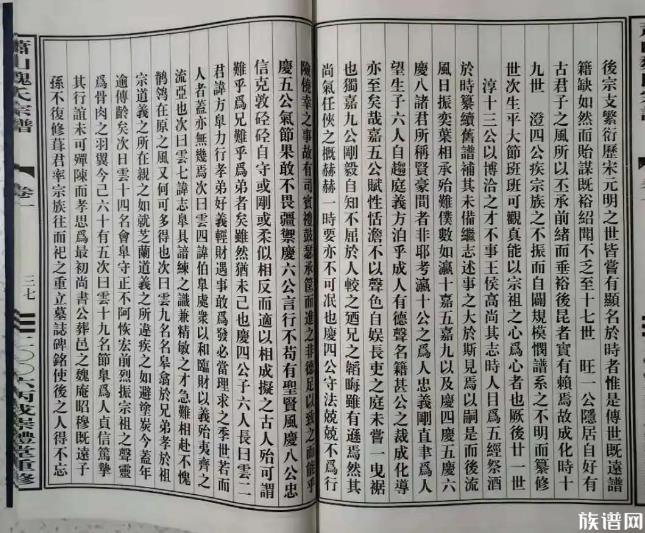 後宗支繁衍歷宋元明之世皆嘗有顯名於時者惟是傳世既遠譜
籍缺如然而貽謀既裕紹聞不乏至十七世 旺一公隱居自好有
古君子之風所以丕承前緒而垂裕後昆者實有賴焉故成化時十
九世 澄四公疾宗族之不振而自闢規模憫譜系之不明而纂修
世次生平大節班班可觀真能以宗祖之心爲心者也厥後廿一世
淳十三公以博洽之才不事王侯高尚其志時人目爲五經祭酒
於時纂續舊譜補其未備繼志述事之大於斯見焉以嗣是而後流
風日振奕葉相承殆難僕數如瀛十嘉五嘉九以及慶四慶五慶六
慶八諸君所稱賢豪間者非耶考瀛十公之爲人忠義剛直聿爲人
望生子六人自趨庭義方洎乎成人有德聲名籍甚公之裁成化導
亦至矣哉嘉五公賦性恬澹不以聲色自娛長吏之庭未嘗一曳裾
也獨嘉九公剛毅自知不屈於人較之迺兄之韜晦雖有遜焉然其
尚氣任俠之概赫赫一時要亦不可冺也慶四公守法兢兢不爲行
險僥幸之事故有司賓禮鼓瑟承筐而進之非德足以致之而能乎
慶五公氣節果敢不畏彊禦慶六公言行不苟有聖賢風慶八公忠
信克敦硜硜自守或剛或柔似相反而適以相成擬之古人殆可謂
難乎爲兄難乎爲弟者矣雖然猶未已也慶四公子六人長曰雲二
君諱方皐力行孝弟好義輕財遇事敢爲發必當理求之季世若而
人者蓋亦無幾焉次曰雲四諱伯皐處衆以和臨財以義殆夷齊之
流亞也次曰雲七諱志皐具諳練之識兼精敏之才急難相赴不愧
鹡鸰在原之風又何可多得也次曰雲九名名皐翕於兄弟孝於祖
宗道義之所在親之如就芝蘭道義之所違疾之如避塗炭今蓋年
逾傳齡矣次曰雲十四名會皐守正不阿恢宏前烈振宗祖之聲靈
爲骨肉之羽翼今已六十有五次曰雲十九名節皐爲人貞信篤摯
其行誼未可殫陳而孝思爲最初尚書公葬邑之魏庵昭穆既遠子
孫不復修葺君率宗族往而祀之重立墓誌碑銘使後之人得不忘
蕭山魏氏宗譜
卷一
三七
二〇〇六丙戌崇禮堂重修
族谱网